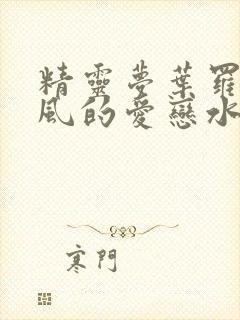 精靈夢葉羅
風的愛戀水
寒門